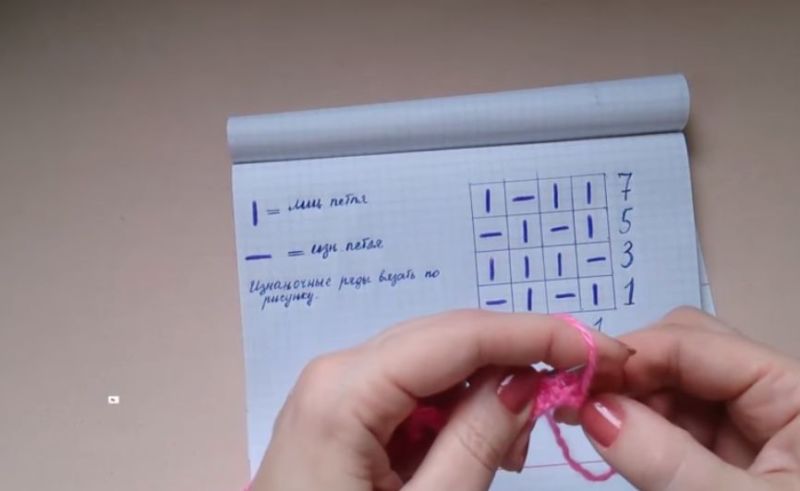 | = лиц петля
— = изн. петля
Изнаночные ряды вязать по
рисунку.
| — | | 7
— | — | 5
| | | — 3
— | — | 1
1